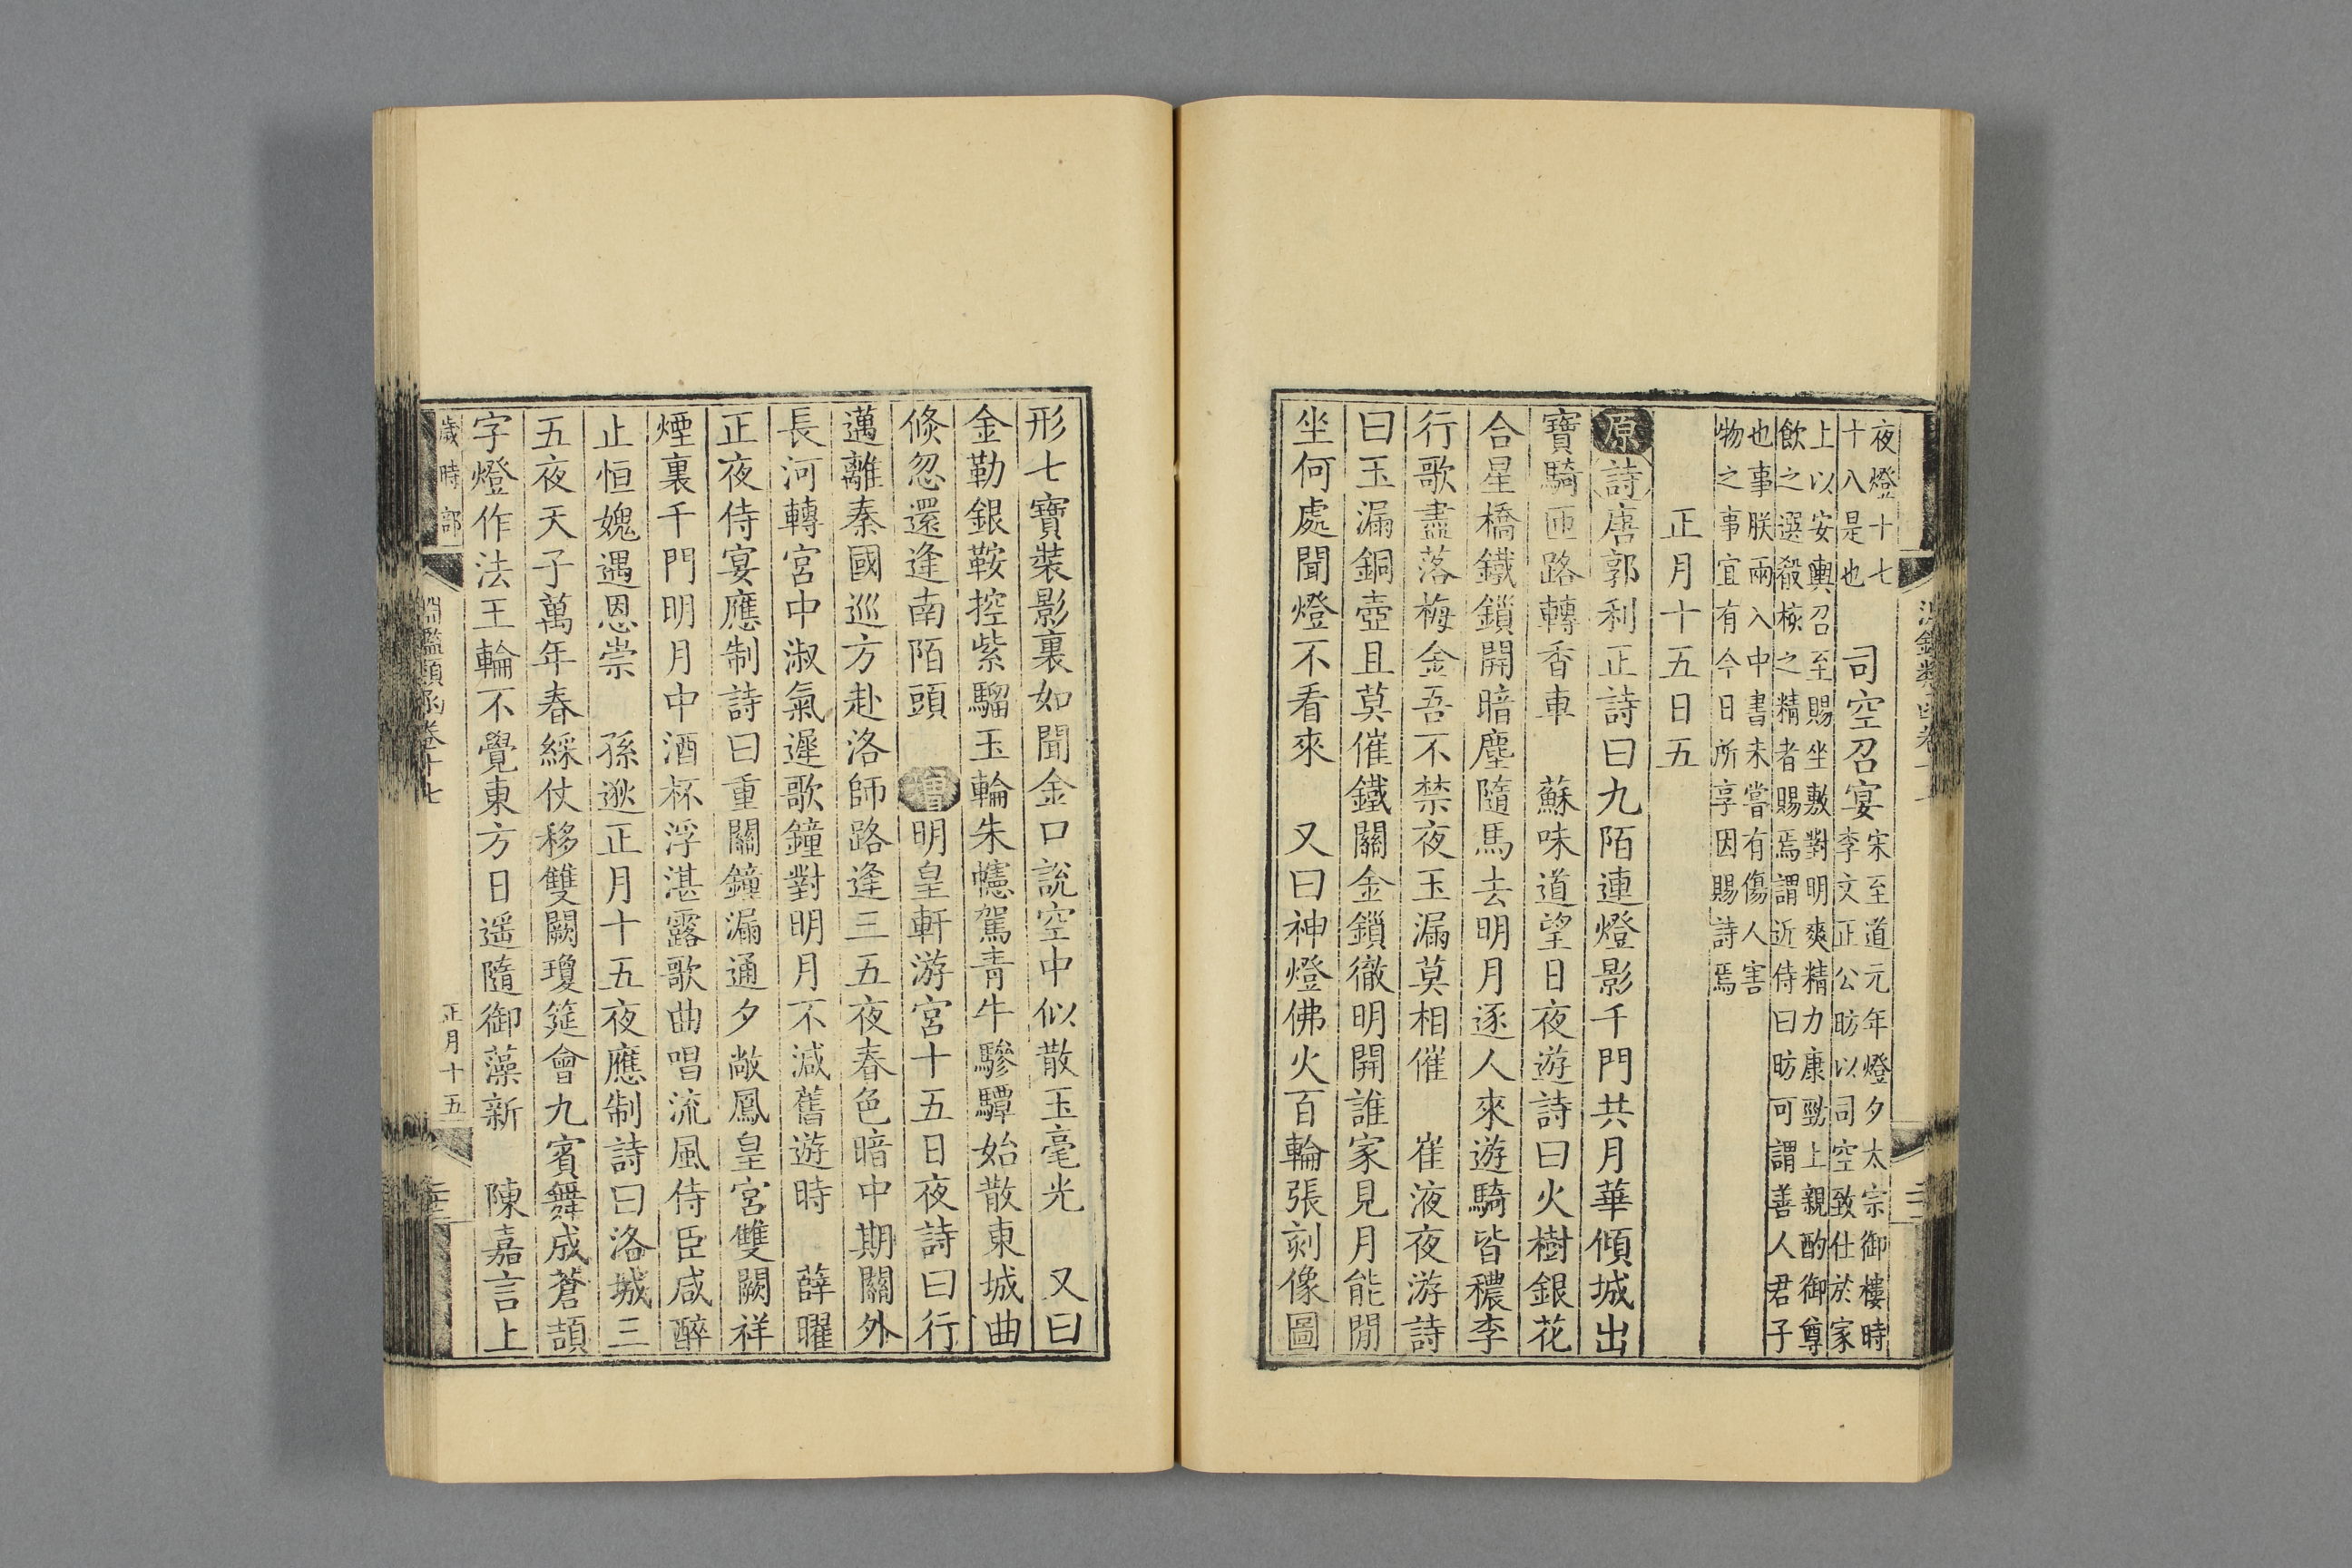 夜燈十七
十八是也
司空召宴
宋至道元年燈夕太宗御樓時
李文正公昉以司空致仕於家
上以安輿召至賜坐敷對明爽精力康勁上親酌御尊
飲之選殽核之精者賜焉謂近侍曰昉可謂善人君子
也事朕兩入中書未嘗有傷人害
物之事宜有今日所享因賜詩焉
正月十五日五
原詩唐郭利正詩曰九陌連燈影千門共月華傾城出
寶騎匝路轉香車　蘇味道望日夜遊詩曰火樹銀花
合星橋鐵鎖開暗塵隨馬去明月逐人來遊騎皆穠李
行歌盡落梅金吾不禁夜玉漏莫相催　崔液夜游詩
曰玉漏銅壺且莫催鐵關金鎖徹明開誰家見月能閒
坐何處聞燈不看來　又曰神燈佛火百輪張刻像圖
形七寶裝影裏如聞金口說空中似散玉毫光　又曰
金勒銀鞍控紫騮玉輪朱幰駕青牛驂驔始散東城曲
倐忽還逢南陌頭　增明皇軒游宮十五日夜詩曰行
邁離秦國巡方赴洛師路逢三五夜春色暗中期關外
長河轉宮中淑氣遲歌鐘對明月不減舊遊時　薛曜
正夜侍宴應制詩曰重關鐘漏通夕敞鳳皇宮雙闕祥
煙裏千門明月中酒杯浮湛露歌曲唱流風侍臣咸醉
止恒媿遇恩崇　孫逖正月十五夜應制詩曰洛城三
五夜天子萬年春綵仗移雙闕瓊筵會九賓舞成蒼頡
字燈作法王輪不覺東方日遥隨御藻新　陳嘉言上
歲時部
淵鑑類函卷十七
正月十五